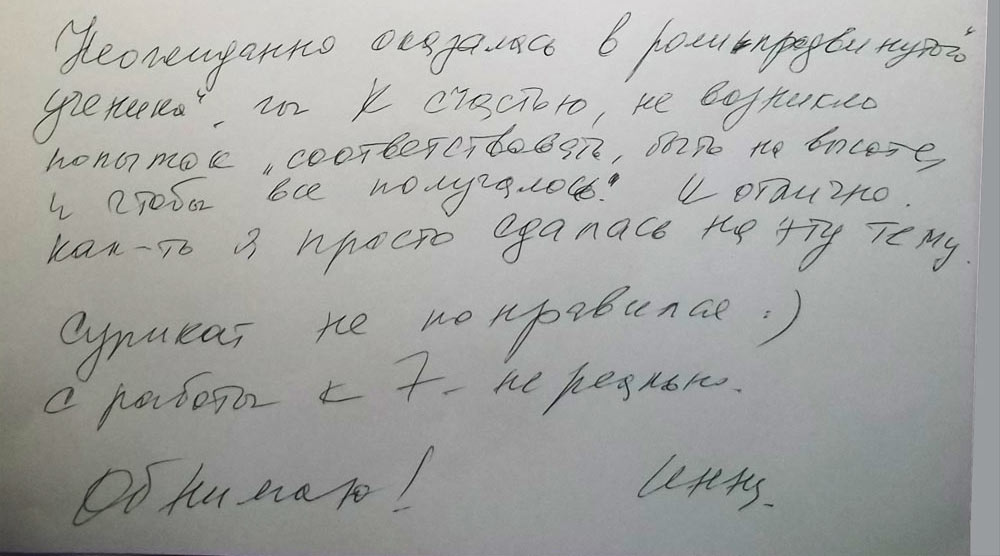 Неожиданно оказалась в роли "продвинутой
ученика", К счастью, не возникло
попыток "соответствовать, быть на высоте,
и чтобы все получалось". И отлично.
как-ть я просто сдалась на эту тему.
Сурикат не понравился :)
с работы к 7 - не реально.
Обнимаю! Инна.